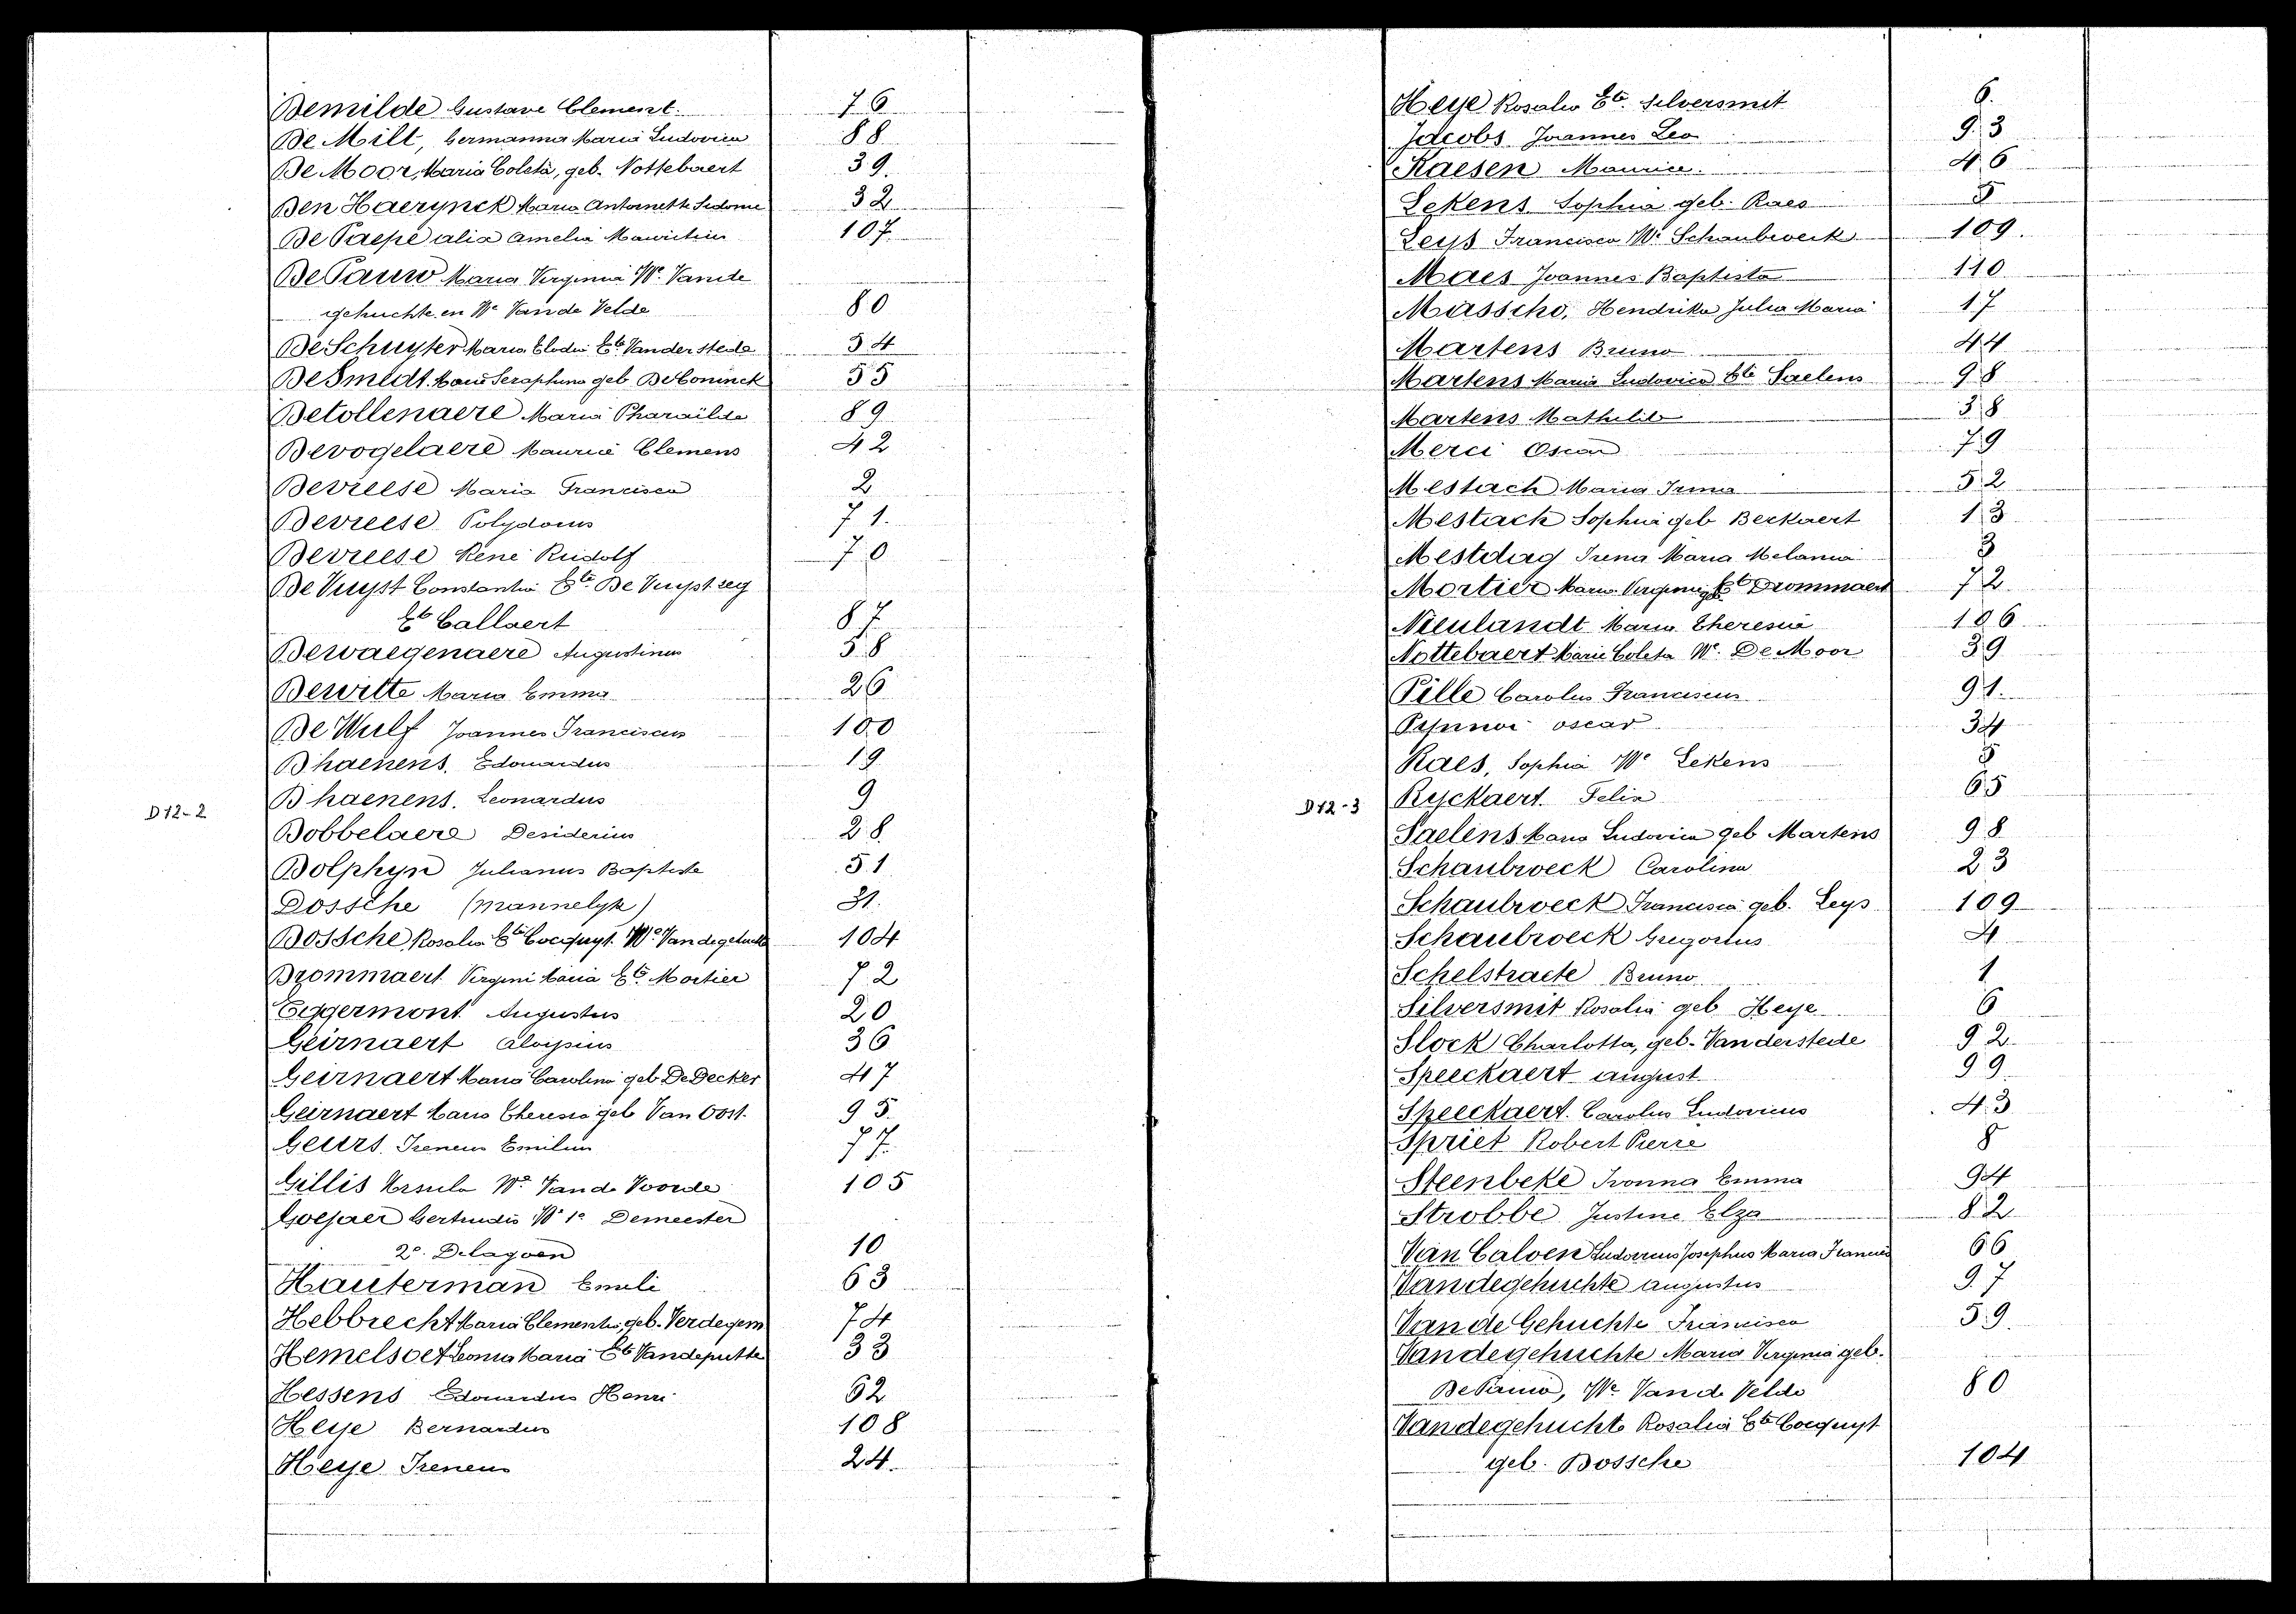 Demilde Gustave Clement. 76
De Milt, Germanna Maria Ludovica 88
De Moor, Maria Coleta, geb. Nottebaert 39.
Den Haerynck Maria Antoinette Sidonie 32
De Paepe alia Amelia 107.
De Pauw Maria Virginia We. Vande
gehuchte en We Van de Velde 80
De Schuyter Maria Elodie Ete Vanderstede 54
De Smedt Maria Seraphina geb De Coninck 55
Detollenaere Maria Pharailde 89
Devogelaere Maurice Clemens 42
Devreese Maria Francisca 2
Devreese Polydorus 71.
Devreese René Rudolf 70
De Vuyst Constantia Ete De Vuyst seg
Ete Callaert 87
Dewaegenaere Augustinus 58
Dewitte Maria Emma 26
De Wulf Joannes Franciscus 100
Dhaenens, Edouardus 19
Dhaenens, Leonardus 9
D12-2
Dobbelaere Desiderius 28
Dolphyn Julianus Baptiste 51
Dossche (Mannelyk) 31.
Dossche Rosalia Ete Cocquyt We Vandegehuchte 104
Drommaert Virgini Maria Ete Mortier 72
Eggermont Augustus 20
Geirnaert Aloysius 36
Geirnaert Maria Carolina geb De Decker 47
Geirnaert Maria Theresia geb Van Oost. 95.
Geurs Ireneus Emilius 77.
Gillis Ursula We Van de Voorde 105
Goepaer Gertrudis We 1e Demeester
2e. Delagoen 10
Hauterman Emile 63
Hebbrecht Maria Clementia, geb. Verdegem 74
Hemelsoet Leonia Maria Ete Vandeputte 33
Hessens Edouardus Henri 62
Heye Bernardus 108
Heye Ireneus 24.
Heye Rosalia Ete Silversmit 6.
Jacobs Joannes Leo 93
Kaesen Maurice. 46
Lekens Sophia geb. Raes 5
Leys Francisca We Schaubroeck 109.
Maes Joannes Baptista 110
Massché, Hendrika Julia Maria 17
Martens Bruno 44
Martens Maria Ludovica Ete Saelens 98
Martens Mathilde 38
Merci Oscar 79
Mestach Maria Irma 52
Mestach Sophia geb Beckaert 13
Mestdag Irena Maria Melania 3
Mortier Maria Virginie Ete Drommaert 72
Nieulandt Maria Theresia 106
Nottebaert Marie Coleta We. De Moor 39
Pille Carolus Franciscus 91.
oscar 34
Raes, Sophia We Lekens 5
D12-3
Ryckaert Felix 65
Saelens Maria Ludovica geb Martens 98
Schaubroeck Carolina 23
Schaubroeck Francisca geb. Leys 109
Schaubroeck Gregorius 4
Schelstraete Bruno 1
Silversmit Rosalia geb Heye 6
Slock Charlotta, geb. Vanderstede 92
Speeckaert august 99
Speeckaert. Carolus Ludovicus 43
Spriet Robert Pierre 8
Steenbeke Ivonna Emma 94
Strobbe Justine Elza 82
Van Caloen Ludovicus Josephus Maria Francis 66
Vandegehuchte augustus 97
Van de Gehuchte Francisca 59.
Vandegehuchte Maria Virginia geb.
De Pauw, We Van de Velde 80
Vandegehuchte Rosalia Ete Cocquyt
geb. Dossche 104